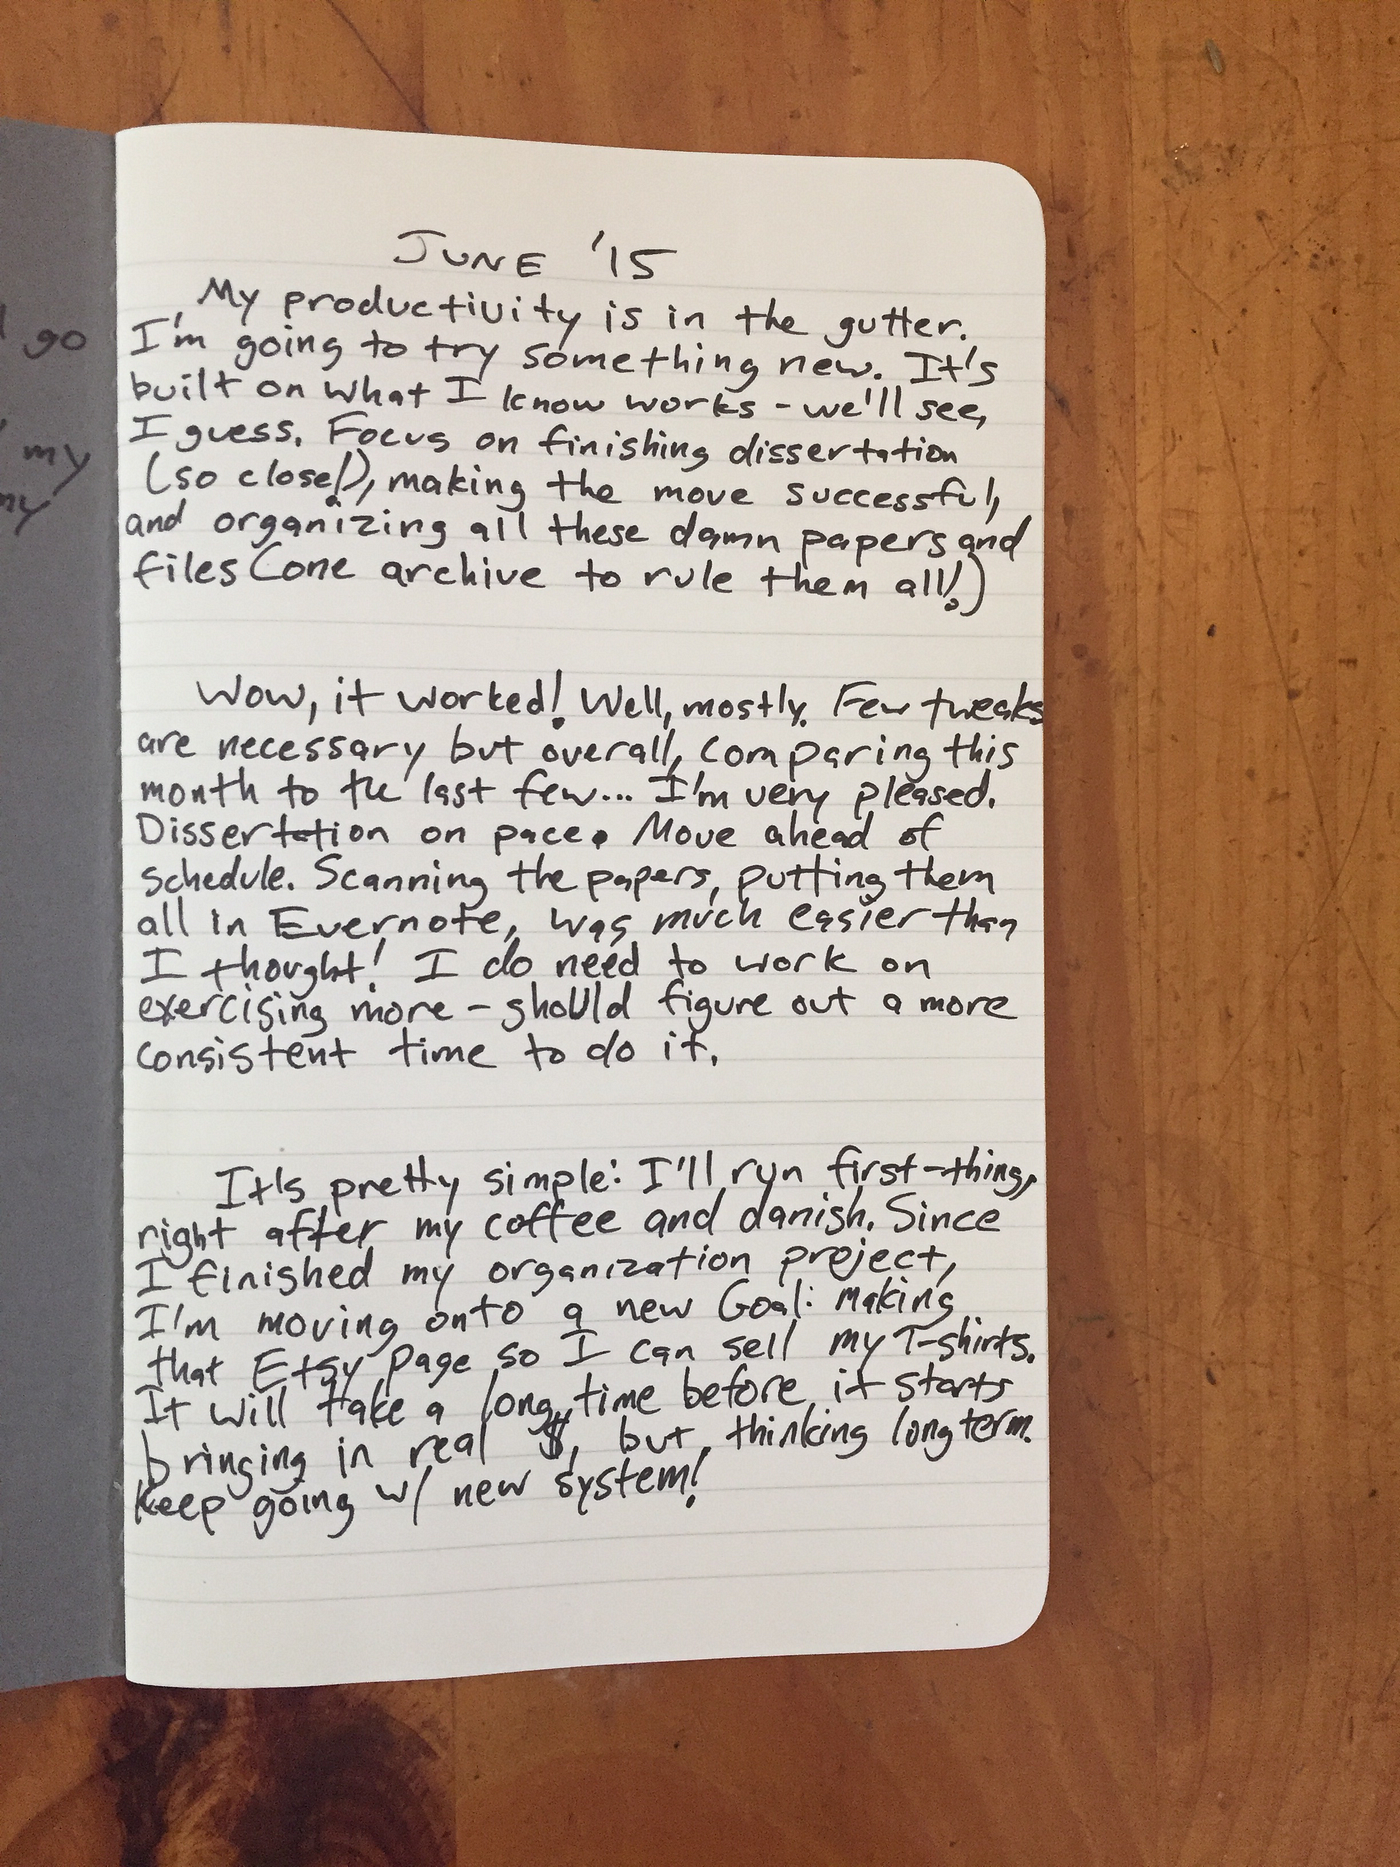 go
my
my
JUNE '15
My productivity is in the gutter.
I'm going to try something new. It's
built on what I know works - we'll see,
I guess. Focus on finishing dissertation
(so close!), making the move successful,
and organizing all these damn papers and
files (one archive to rule them all!)
Wow, it worked! Well, mostly. Few tweaks
are necessary but overall, comparing this
month to the last few... I'm very pleased.
Dissertation on pace. Move ahead of
schedule. Scanning the papers, putting them
all in Evernote, was much easier than
I thought! I do need to work on
exercising more - should figure out a more
consistent time to do it.
It's pretty simple: I'll run first-thing,
right after my coffee and danish. Since
I finished my organization project,
I'm moving onto a new Goal: making
that Etsy page so I can sell my T-shirts.
It will take a long time before it starts
bringing in real $, but, thinking long term.
Keep going w/ new system!